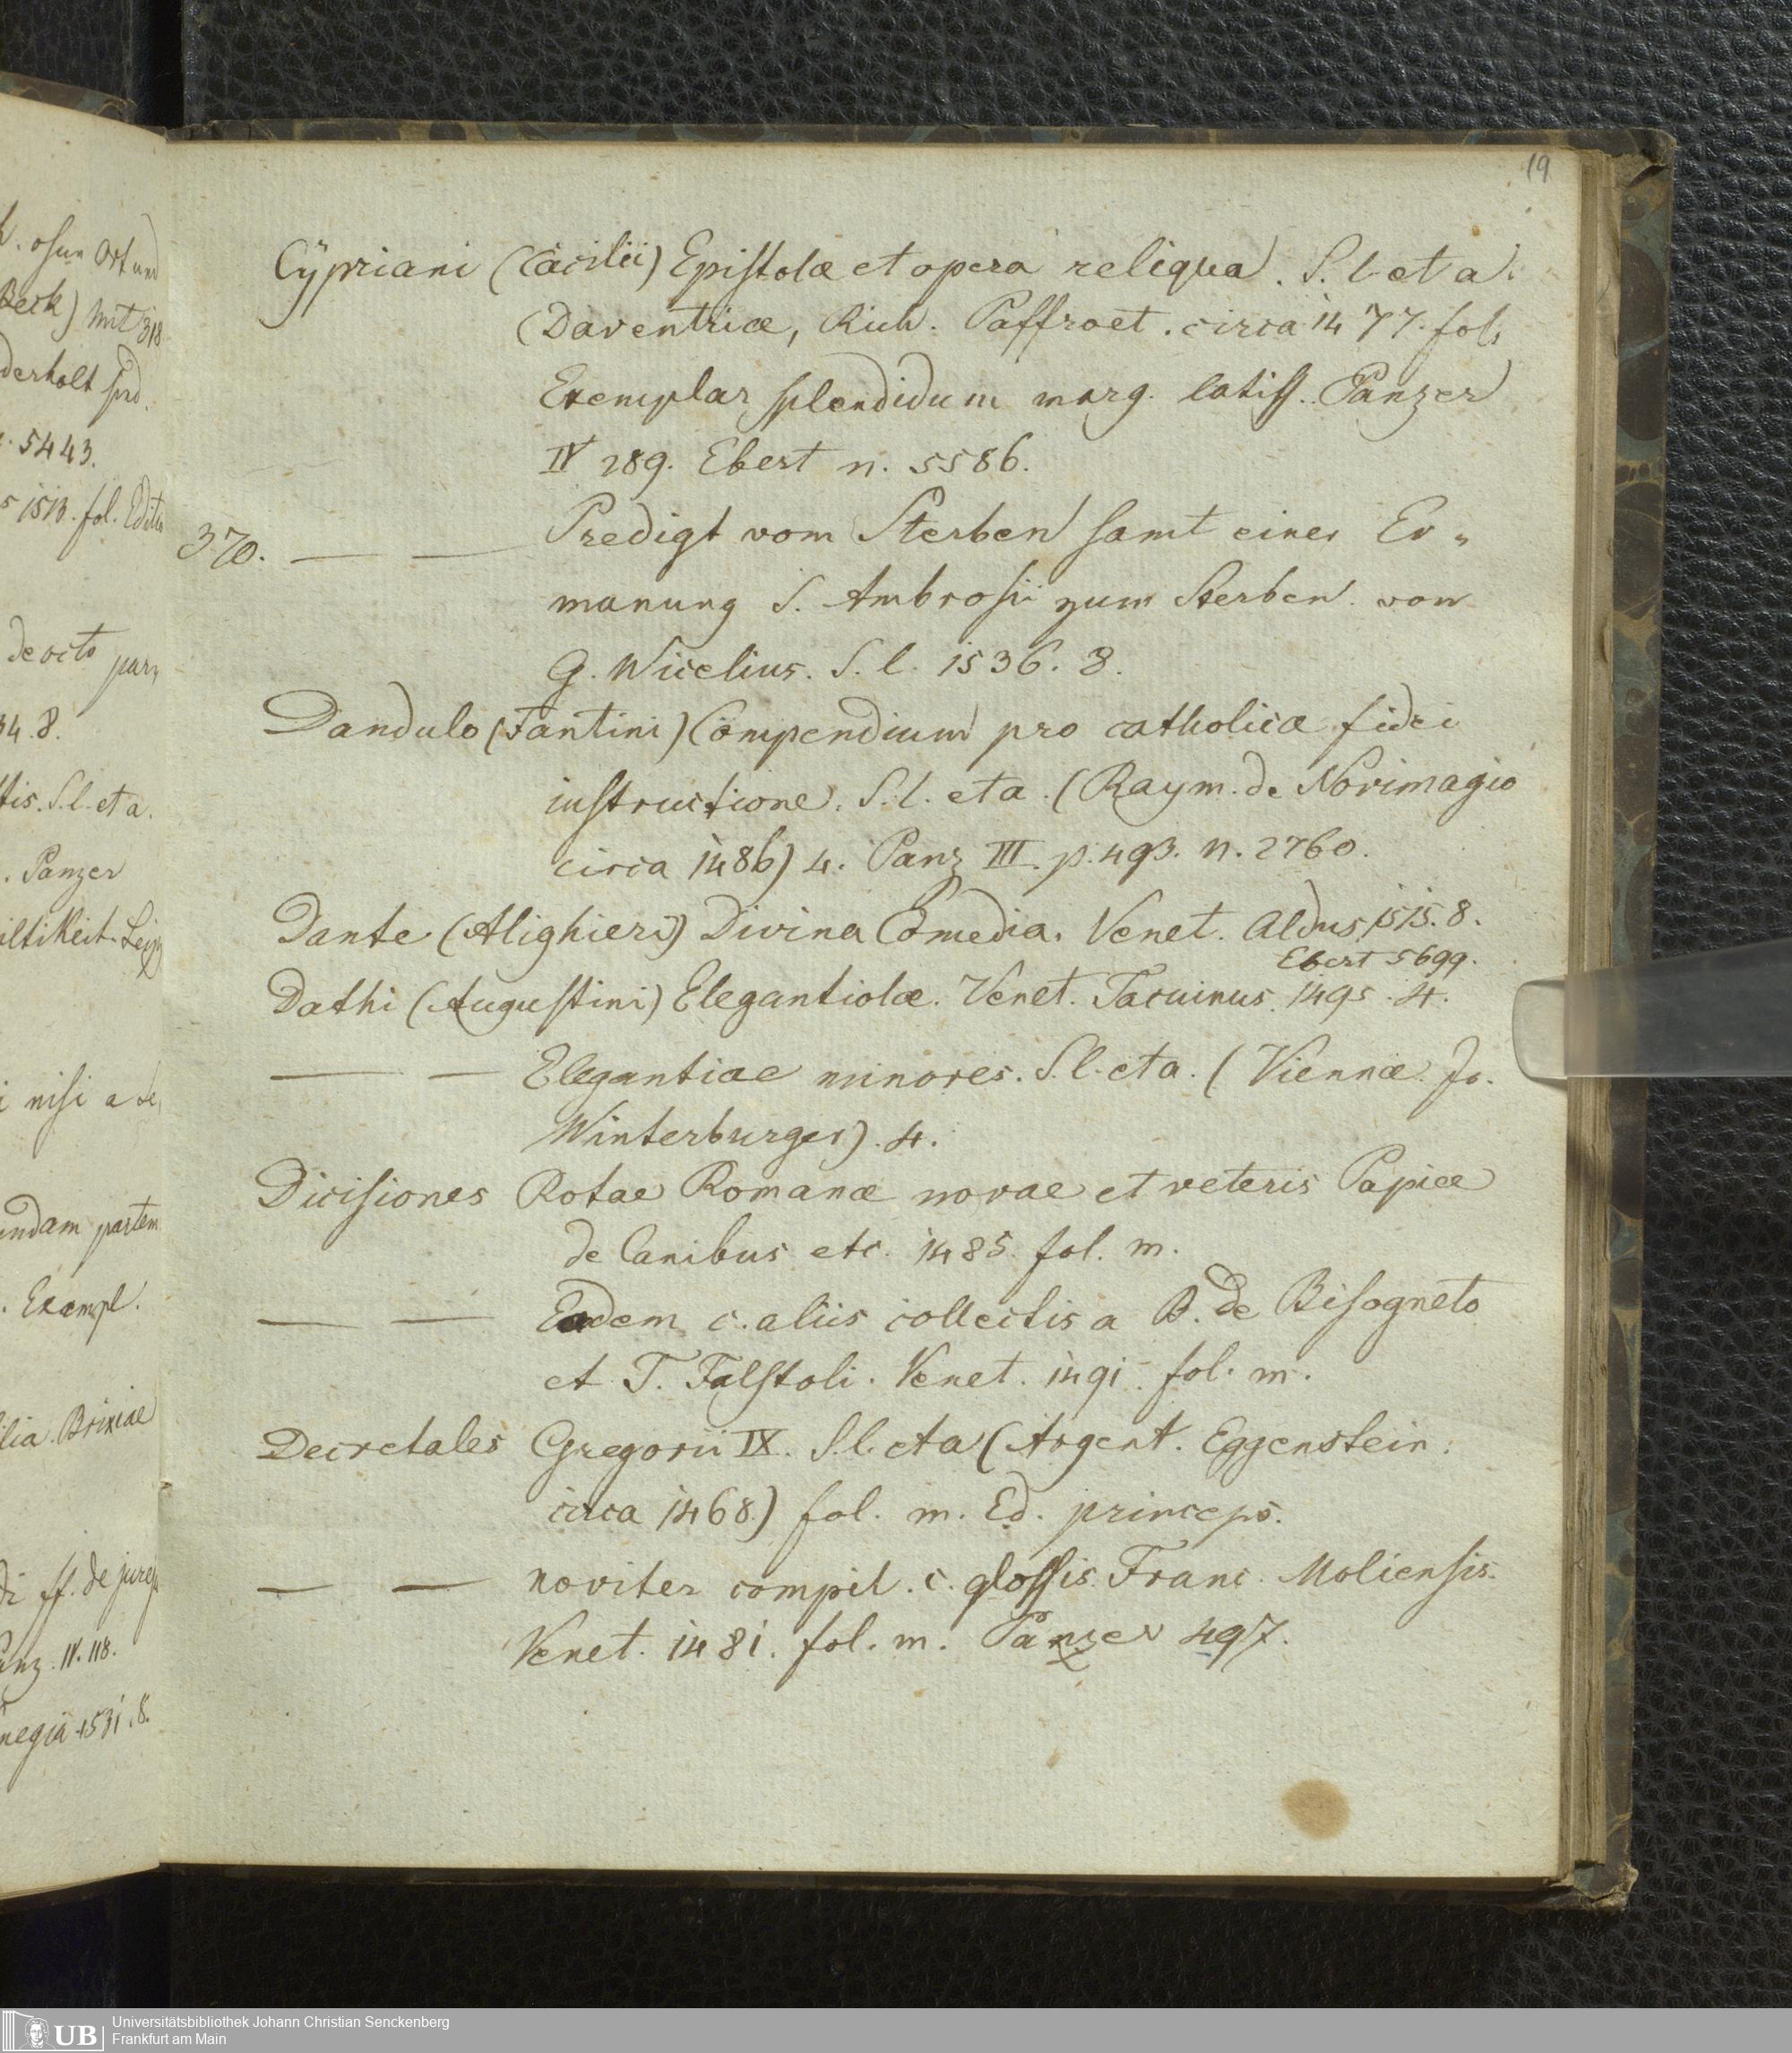 19
Cÿpriani (Cäcilii) Epistolæ et opera reliqua. S. l et a.
(Daventriæ, Rich. Paffroet. circa 1477. fol.
Exemplar splendidum marg. latiss. Panzer
IV 289. Ebert n. 5586.
370. — — Predigt vom Sterben samt einer Er-
manung S. Ambrosii zum Sterben von
G. Wicelius. S. l. 1536. 8.
Dandulo (Fantini) Compendium pro catholicæ fidei
instructione. S. l. et a. (Raym. de Novimagio
circa 1486) 4. Panz III. p. 493. n. 2760.
Dante (Alighieri) Divina Comedia. Venet. Aldus 1515. 8.
Ebert 5699.
Dathi (Augustini) Elegantiolæ. Venet. Tacuinus. 1495. 4.
— — Elegantiae minores. S. l. et a. (Viennæ. Jo.
Winterburger). 4.
Dicisiones Rotae Romanæ novae et veteris Papiæ
de Canibus etc. 1485. fol. m.
— — Eadem c. aliis collectis a B. de Bisogneto
et T. Falstoli. Venet. 1491. fol. m.
Decretales Gregorii IX. S. l. et a (Argent. Eggenstein.
circa 1468.) fol. m. Ed. princeps.
— — noviter compil. c. glossis Franc. Moliensis.
Venet. 1481. fol. m. Panzer 497.
ohne Ort und
Beck) mit 318
derholt
5443.
1513. fol. Editio
de octo par-
34. 8.
tis. S. l. et a.
. Panzer
iltikeit. Leipz
i nisi a de
endam partem
. Exempl.
ilia. Brixiae
di ff. de
anz. IV. 118.
negia 1531. 8.
UB Universitätsbibliothek Johann Christian Senckenberg
Frankfurt am Main